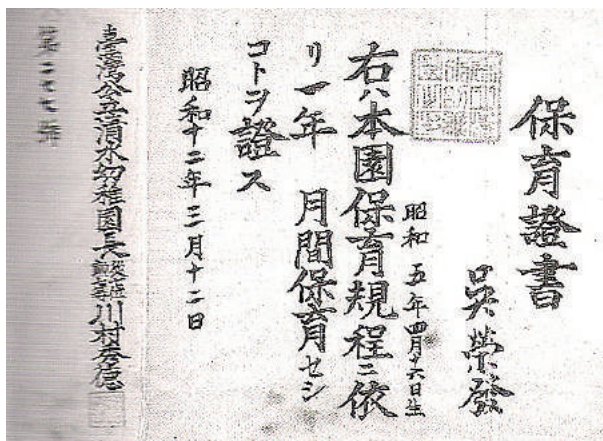 保育證書
吳榮發
昭和 五年四月十六日生
右ハ本園保育規程ニ依
リ一年 月間保育セシ
コトヲ證ス
昭和十二年三月十二日
臺灣公立清水幼稚園長 川村秀德
第二七七號